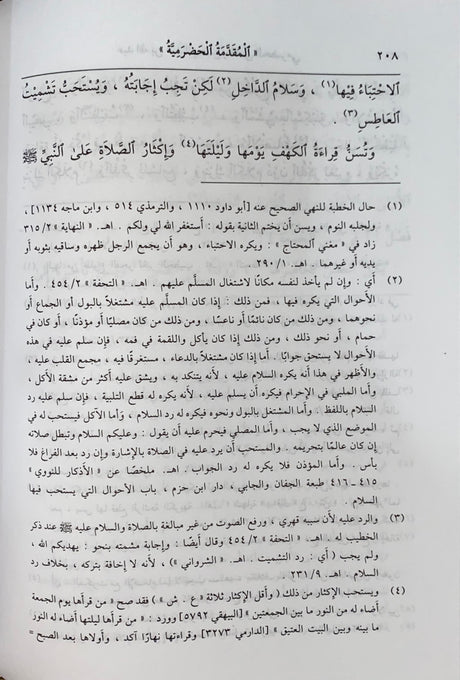 ٢٠٨
« المُقَدِّمَةُ الْحَضْرَمِيَّةُ »
الِاحْتِبَاءُ فِيهَا(١) ، وَسَلَامُ الدَّاخِلِ(٢) لَكِنْ تَجِبُ إِجَابَتُهُ ، وَيُسْتَحَبُّ تَشْمِيْتُ
الْعَاطِسِ(٣) .
وَتُسَنُّ قِرَاءَةُ الْكَهْفِ يَوْمَهَا وَلَيْلَتَهَا(٤) وَإِكْثَارُ الصَّلَاةِ عَلَى النَّبِيِّ ﷺ
(١) حال الخطبة للنهي الصحيح عنه [أبو داود ١١١٠ ، والترمذي ٥١٤ ، وابن ماجه ١١٣٤] ،
ولجلبه النوم ، ويسن أن يختم الثانية بقوله : أستغفر الله لي ولكم . اهـ. « النهاية » ٣١٥/٢
زاد في « مغني المحتاج » : ويكره الاحتباء ، وهو أن يجمع الرجل ظهره وساقيه بثوبه أو
يديه أو غيرهما . اهـ. ٢٩٠/١ .
(٢) أي : وإن لم يأخذ لنفسه مكانًا لاشتغال المسلَّم عليهم . اهـ. « التحفة » ٤٥٤/٢ . وأما
الأحوال التي يكره فيها ، فمن ذلك : إذا كان المسلم عليه مشتغلاً بالبول أو الجماع أو
نحوهما ، ومن ذلك من كان نائمًا أو ناعسًا ، ومن ذلك من كان مصليًا أو مؤذنًا ، أو كان في
حمام ، أو نحو ذلك ، ومن ذلك إذا كان يأكل واللقمة في فمه ، فإن سلم عليه في هذه
الأحوال لا يستحق جوابًا . أما إذا كان مشتغلاً بالدعاء ، مستغرقًا فيه ، مجمع القلب عليه ،
والأظهر في هذا أنه يكره السلام عليه ، لأنه يتنكد به ، ويشق عليه أكثر من مشقة الأكل ،
وأما الملبي في الإحرام فيكره أن يسلم عليه ، لأنه يكره له قطع التلبية ، فإن سلم عليه رد
السلام باللفظ . وأما المشتغل بالبول ونحوه فيكره له رد السلام ، وأما الآكل فيستحب له في
الموضع الذي لا يجب ، وأما المصلي فيحرم عليه أن يقول : وعليكم السلام وتبطل صلاته
إن كان عالمًا بتحريمه . والمستحب أن يرد عليه في الصلاة بالإشارة وإن رد بعد الفراغ فلا
بأس . وأما المؤذن فلا يكره له رد الجواب . اهـ. ملخصًا عن « الأذكار للنووي »
٤١٥ – ٤١٦ طبعة الجفان والجابي ، دار ابن حزم ، باب الأحوال التي يستحب فيها
السلام .
(٣) والرد عليه لأن سببه قهري ، ورفع الصوت من غير مبالغة بالصلاة والسلام عليه ﷺ عند ذكر
الخطيب له . اهـ. « التحفة » ٤٥٤/٢ وقال أيضًا : وإجابة مشمته بنحو : يهديكم الله ،
ولم يجب ( أي : رد التشميت . اهـ. « الشرواني » ) ، لأنه لا إخافة بتركه ، بخلاف رد
السلام . اهـ. ٢٣١/٩ .
(٤) ويستحب الإكثار من ذلك ( وأقل الإكثار ثلاثة « ع . ش » ) فقد صح « من قرأها يوم الجمعة
أضاء له من النور ما بين الجمعتين » [البيهقي ٥٧٩٢] وورد : « من قرأها ليلتها أضاء له النور
ما بينه وبين البيت العتيق » [الدارمي ٣٢٧٣] وقراءتها نهارًا آكد ، وأولاها بعد الصبح =